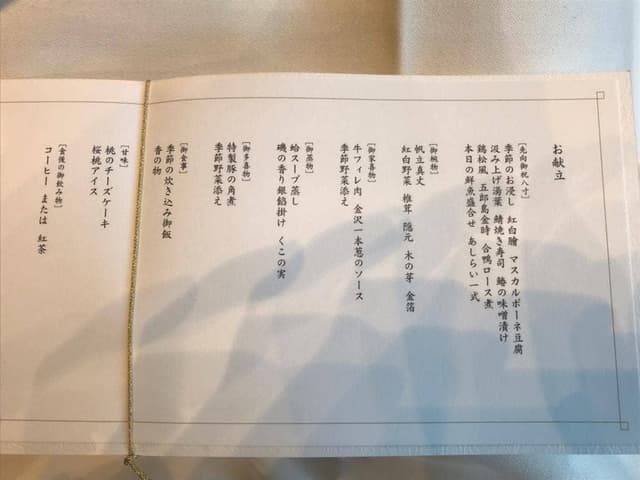 お献立
[先向御祝八寸]
季節のお浸し 紅白膾 マスカルポーネ豆腐
汲み上げ湯葉 鯖焼き寿司 鰆の味噌漬け
鶏松風 五郎島金時 合鴨ロース煮
本日の鮮魚盛合せ あしらい一式
[御椀物]
帆立真丈
紅白野菜 椎茸 隠元 木の芽 金箔
[御家喜物]
牛フィレ肉 金沢一本葱のソース
季節野菜添え
[御蒸物]
蛤スープ蒸し
磯の香り銀餡掛け くこの実
[御多喜物]
特製豚の角煮
季節野菜添え
[御食事]
季節の炊き込み御飯
香の物
[甘味]
桃のチーズケーキ
桜桃アイス
[食後の御飲み物]
コーヒー または 紅茶